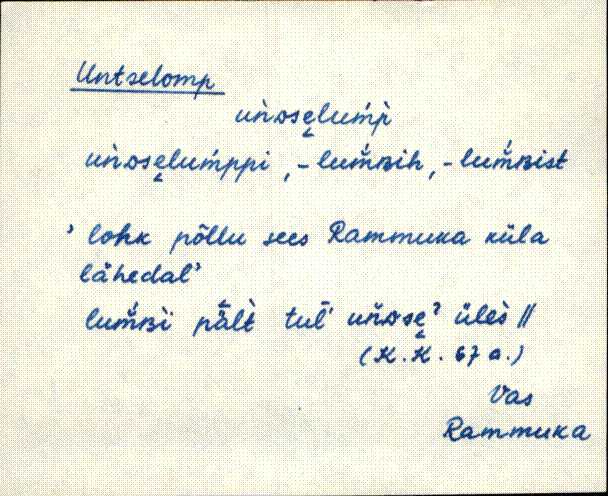 Untselomp
uǹᴅsę̮lumṕ
uǹᴅsę̮lumppi, -lum̆ʙih, -lum̆ʙist
’lohk põllu sees Rammuka küla
lähedal’
lum̆ʙi pält tul´ uňᴅsę̮ʔ ülès //
(K.K. 67 a.)
Vas
Rammuka